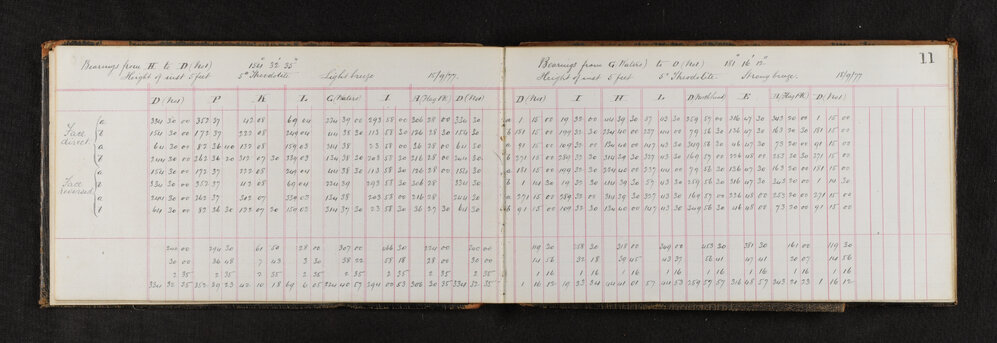 Bearings from H to D (Post) 154° 32' 35"
Height of inst 5 feet 5" Theodolite Light breeze 15/9/77.
D (Post) P K L G (Waters) I A (Flag Pk) D (Post)
Face direct
a 334 30 00 352 37 42 08 69 04 224 39 00 293 58 30 306 28 00 334 30
b 154 30 00 172 37 222 08 249 04 44 38 30 113 58 30 126 28 30 154 30
a 64 30 00 82 36 40 132 08 159 03 314 38 23 58 00 36 28 00 64 30
b 244 30 00 262 36 20 312 07 30 339 03 134 38 30 203 58 30 216 28 00 244 30
Face reversed
a 154 30 00 172 37 222 08 249 04 44 38 30 113 58 30 126 28 00 154 30
b 334 30 00 352 37 42 08 69 04 224 39 293 58 30 306 28 334 30
a 244 30 00 262 37 312 07 339 03 134 38 203 58 00 216 28 244 30
b 64 30 00 82 36 30 132 07 30 159 03 314 37 30 23 58 30 36 27 30 64 30
240 00 294 30 61 50 28 00 307 00 466 30 224 00 240 00
30 00 36 48 7 43 3 30 38 22 58 18 28 00 30 00
2 35 2 35 2 35 2 35 2 35 2 35 2 35 2 35
334 32 35 352 39 23 42 10 18 69 6 05 224 40 57 294 00 53 306 30 35 334 32 35
11
Bearings from G (Waters) to D (Post) 181° 16' 12"
Height of inst 5 feet 5" Theodolite Strong breeze. 18/9/77
D (Post) I H L D (Rockland) E A (Flag Pk) D (Post)
a 1 15 00 19 32 00 44 39 30 57 43 30 259 57 00 316 47 30 343 20 00 1 15 00
b 181 15 00 199 32 30 224 40 00 237 44 00 79 56 30 136 47 30 163 20 30 181 15 00
a 91 15 00 109 32 00 134 40 00 147 43 30 349 56 30 46 47 30 73 20 00 91 15 00
b 271 15 00 289 32 30 314 39 30 327 43 30 169 57 00 226 48 00 253 20 30 271 15 00
a 181 15 00 199 32 30 224 40 00 237 44 00 79 56 30 136 47 30 163 20 00 181 15 00
b 1 14 30 19 32 30 44 39 30 57 43 30 259 56 30 316 47 30 343 20 00 1 14 30
a 271 15 00 289 32 00 314 39 30 327 43 30 169 57 00 226 48 00 253 20 00 271 15 00
b 91 15 00 109 32 30 134 40 00 147 43 30 349 56 30 46 48 00 73 20 00 91 15 00
119 30 258 30 318 00 349 00 453 30 381 30 161 00 119 30
14 56 32 18 39 45 43 37 56 41 47 41 20 07 14 56
1 16 1 16 1 16 1 16 1 16 1 16 1 16 1 16
1 16 12 19 33 34 44 41 01 57 44 53 259 57 57 316 48 57 343 21 23 1 16 12